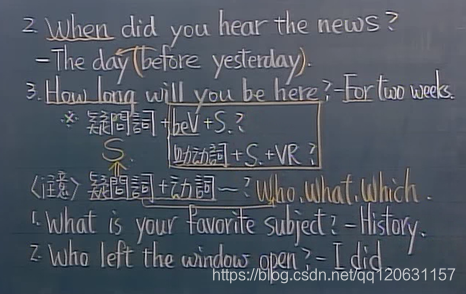 2. When did you hear the news?
- The day (before yesterday).
3. How long will you be here? - For two weeks.
※ 疑問詞 + beV + S.?
助动詞 + S. + VR ?
S.
〈注意〉 疑問詞 + 动詞 ~ ? Who, What, Which.
1. What is your favorite subject? - History.
2. Who left the window open? - I did.
https://blog.csdn.net/qq120631157